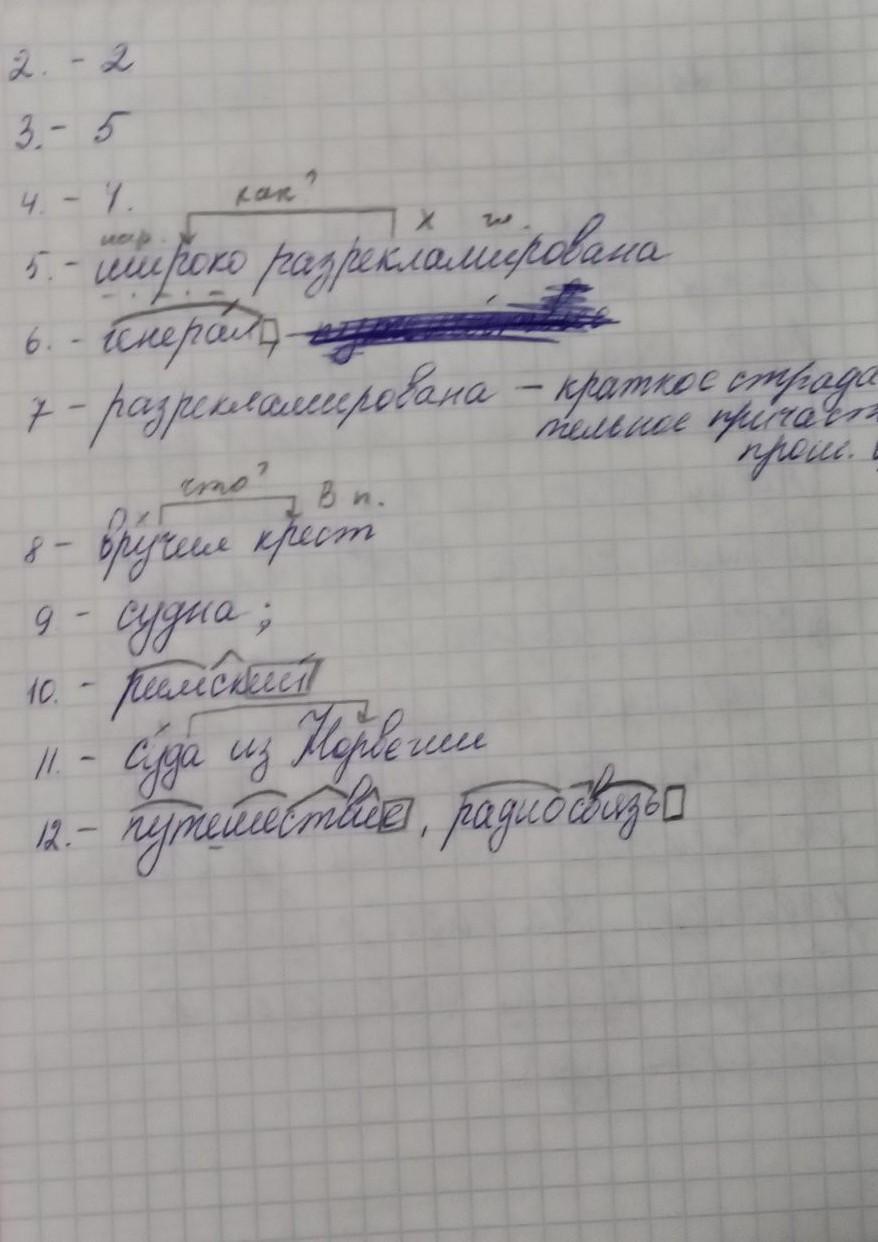 2. - 2
3. - 5
4. - 1.
как?
нар. х
5. - широко разрекламирована
6. - генерал
7 - разрекламирована - краткое страда
тельное причаст
прош.
что? В п.
х
8 - вручил крест
9 - судна ;
10. - римский
11. - суда из Норвегии
12. - путешествие, радиосвязь